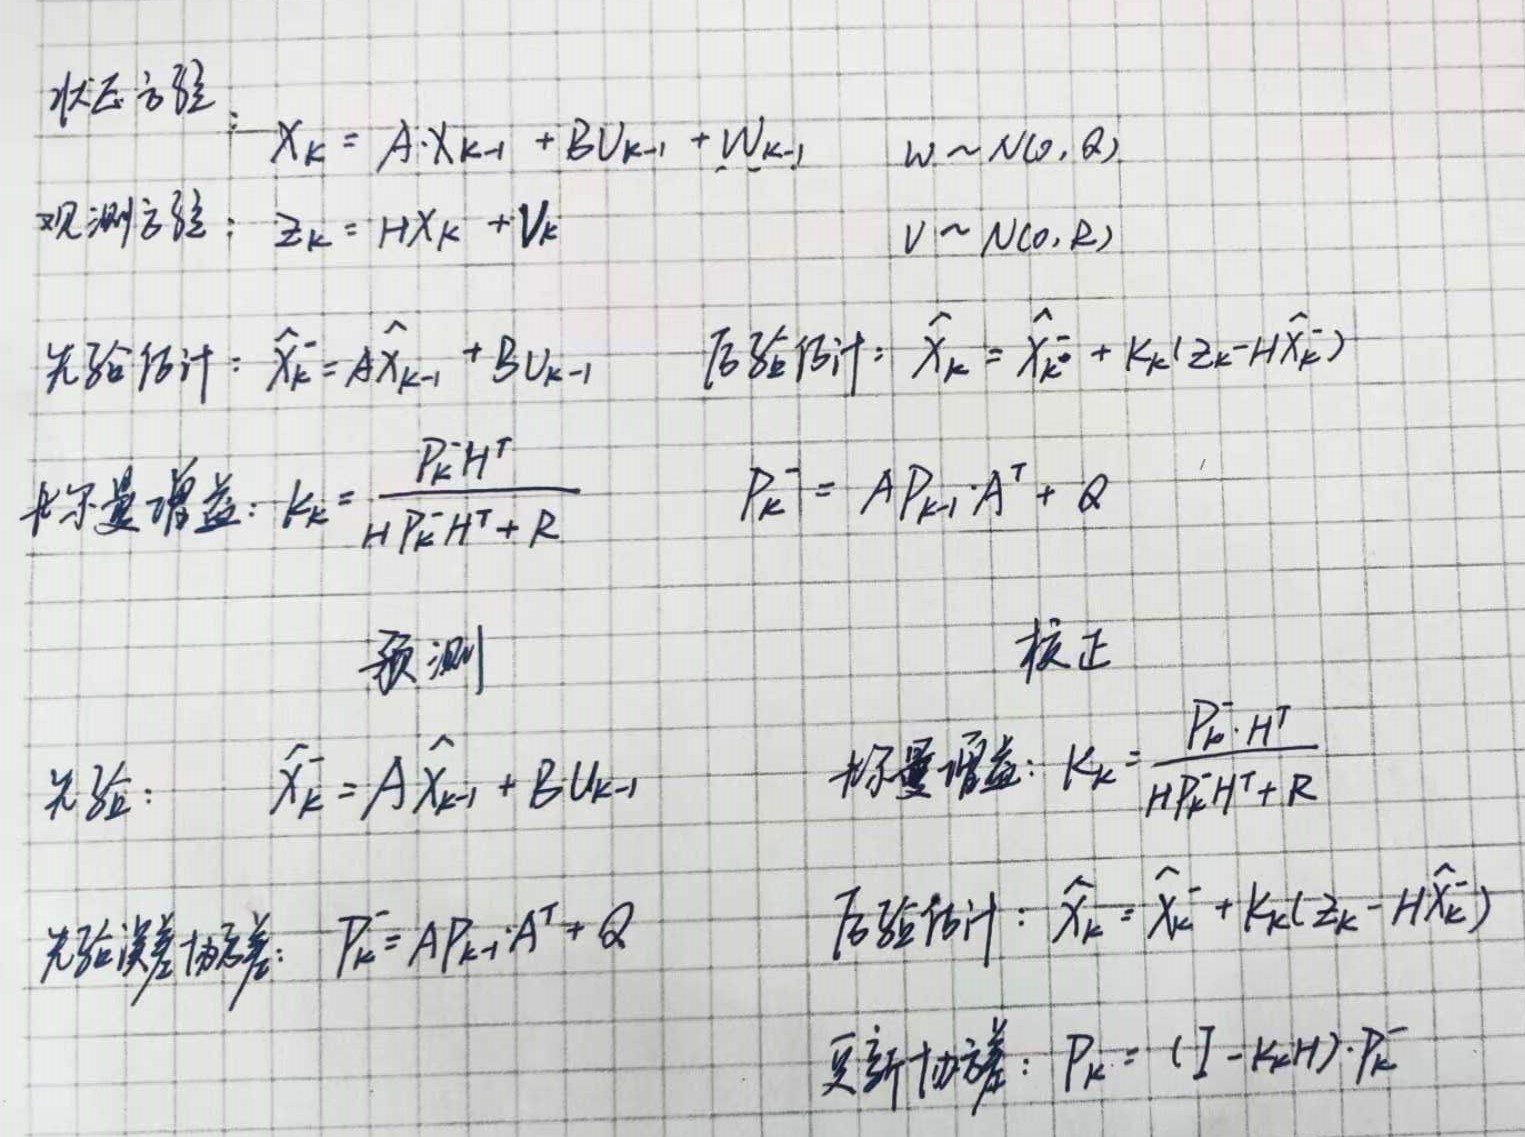 状态方程:
X_k = A·X_{k-1} + BU_{k-1} + W_{k-1}    W ~ N(0, Q)
观测方程: Z_k = HX_k + V_k    V ~ N(0, R)
先验估计: X̂_k^- = AX̂_{k-1} + BU_{k-1}    后验估计: X̂_k = X̂_k^- + K_k(Z_k - HX̂_k^-)
卡尔曼增益: K_k = P_k^-H^T / (HP_k^-H^T + R)    P_k^- = AP_{k-1}·A^T + Q
预测    校正
先验: X̂_k^- = AX̂_{k-1} + BU_{k-1}    卡尔曼增益: K_k = P_k^-·H^T / (HP_k^-H^T + R)
先验误差协方差: P_k^- = AP_{k-1}·A^T + Q    后验估计: X̂_k = X̂_k^- + K_k(Z_k - HX̂_k^-)
更新协方差: P_k = (I - K_kH)·P_k^-